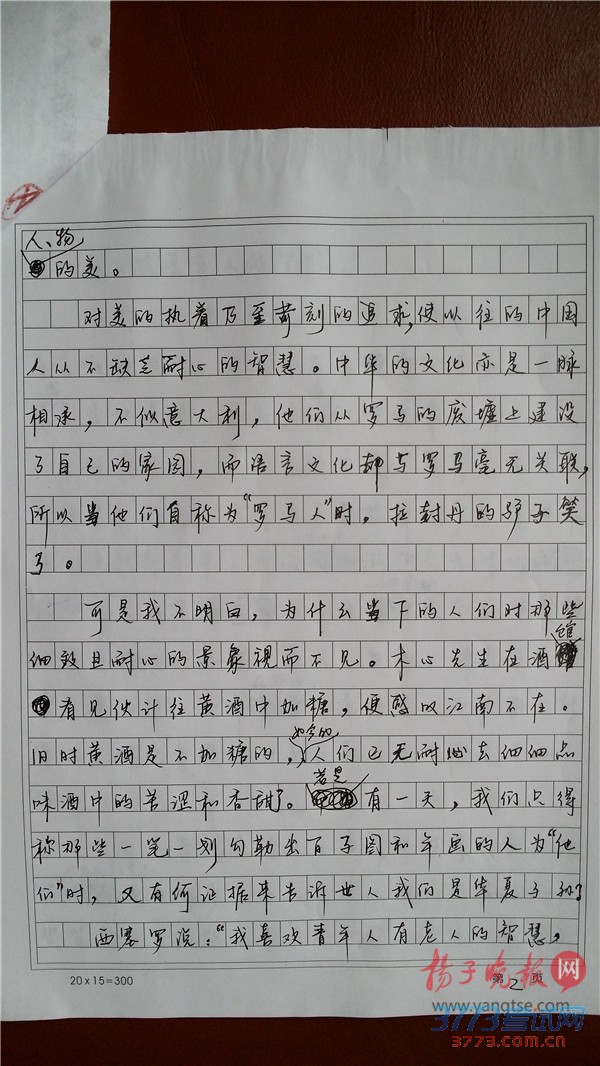 人、物
的美。
对美的执着乃至苛刻的追求,使以往的中国
人从不缺乏耐心的智慧。中华的文化亦是一脉
相承，不似意大利，他们从罗马的废墟上建设
了自己的家园，而语言文化却与罗马毫无关联，
所以当他们自称为“罗马人”时，拉封丹的驴子笑
了。
可是我不明白，为什么当下的人们对那些
细致且耐心的景象视而不见。木心先生在酒馆
有见伙计往黄酒中加糖，便感叹江南不在。
旧时黄酒是不加糖的，如今的人们已无耐心去细细品
味酒中的苦涩和香甜了。若是有一天，我们只得
称那些一笔一划勾勒出百子图和年画的人为“他
们”时，又有何证据来告诉世人我们是华夏子孙？
西塞罗说：“我喜欢青年人有老人的智慧，
20×15=300
第2页
扬子晚报网
www.yangtse.com
3773考试网
3773.com.cn